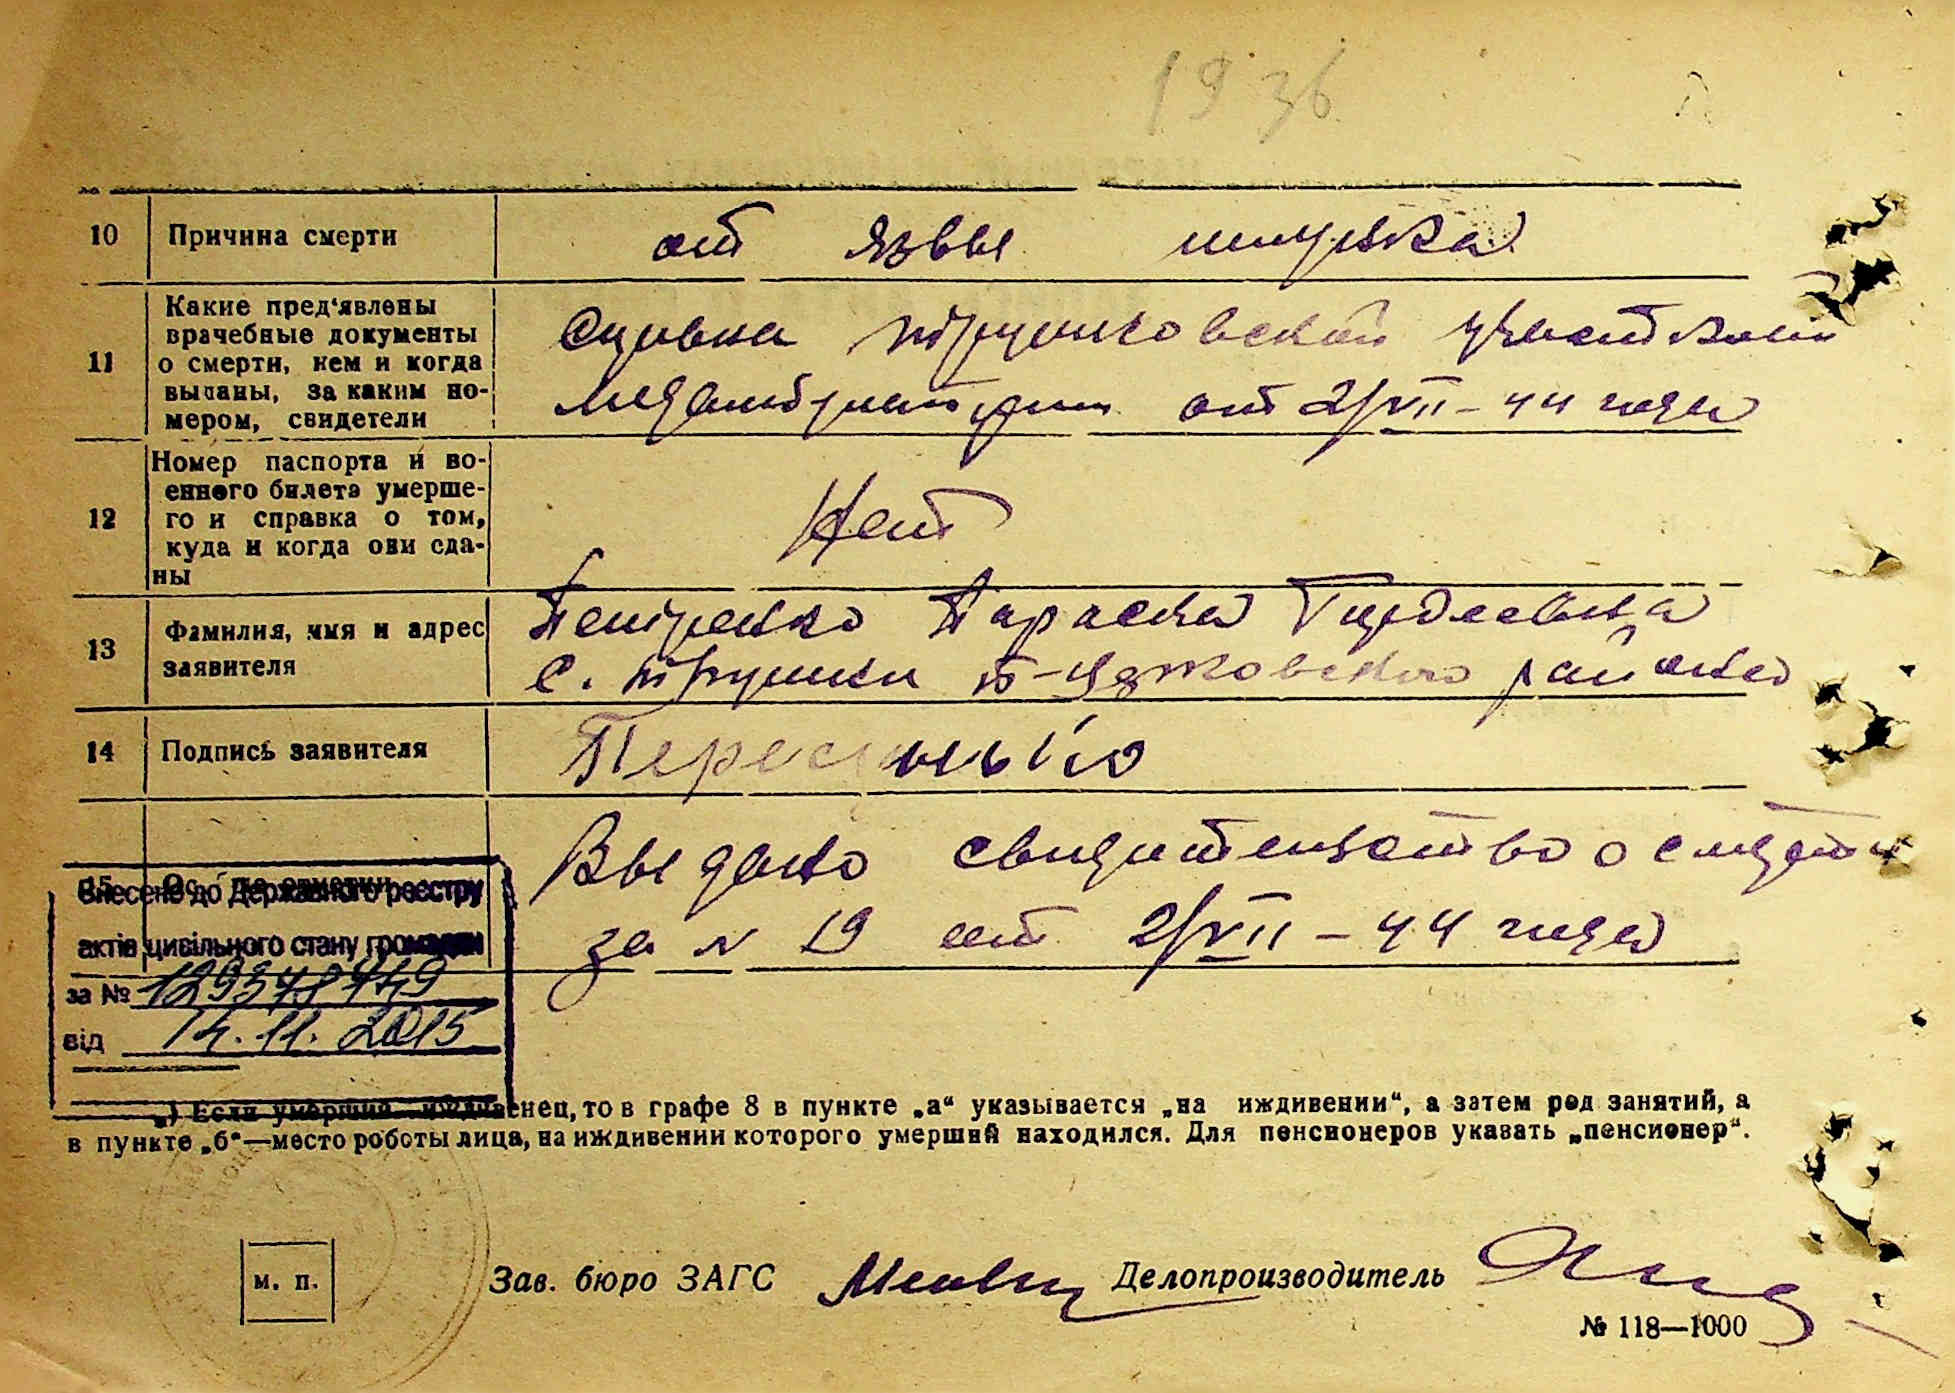 1936
10 Причина смерти от язвы желудка
11 Какие пред‘явлены
врачебные документы
о смерти, кем и когда
выданы, за каким но-
мером, свидетели
Справка Трушковской участковой
медамбулатории от 2/VII-44 года
12 Номер паспорта и во-
енного билета умерше-
го и справка о том,
куда и когда они сда-
ны
Нет
13 Фамилия, имя и адрес
заявителя
Петренко Параска
с. Трушки района
14 Подпись заявителя
15
Выдано свидетельство о смерти
за N 19 от 2/VII-44 года
Внесено до Державного реєстру
актів цивільного стану громадян
за №
від 14.11.2015
*) Если умерший иждивенец, то в графе 8 в пункте „а“ указывается „на иждивении“, а затем род занятий, а
в пункте „б“—место роботы лица, на иждивении которого умерший находился. Для пенсионеров указать „пенсионер“.
м. п.
Зав. бюро ЗАГС Делопроизводитель
№ 118—1000